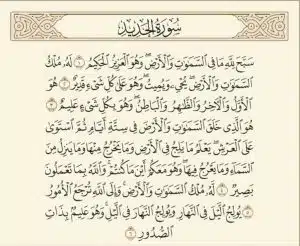 سُورَةُ الحَدِيدِ
سَبَّحَ لِلَّهِ مَا فِي السَّمَاوَاتِ وَالْأَرْضِ وَهُوَ الْعَزِيزُ الْحَكِيمُ ١ لَهُ مُلْكُ
السَّمَاوَاتِ وَالْأَرْضِ يُحْيِي وَيُمِيتُ وَهُوَ عَلَى كُلِّ شَيْءٍ قَدِيرٌ ٢ هُوَ
الْأَوَّلُ وَالْآخِرُ وَالظَّاهِرُ وَالْبَاطِنُ وَهُوَ بِكُلِّ شَيْءٍ عَلِيمٌ ٣
هُوَ الَّذِي خَلَقَ السَّمَاوَاتِ وَالْأَرْضَ فِي سِتَّةِ أَيَّامٍ ثُمَّ اسْتَوَى
عَلَى الْعَرْشِ يَعْلَمُ مَا يَلِجُ فِي الْأَرْضِ وَمَا يَخْرُجُ مِنْهَا وَمَا يَنزِلُ مِنَ
السَّمَاءِ وَمَا يَعْرُجُ فِيهَا وَهُوَ مَعَكُمْ أَيْنَ مَا كُنتُمْ وَاللَّهُ بِمَا تَعْمَلُونَ
بَصِيرٌ ٤ لَهُ مُلْكُ السَّمَاوَاتِ وَالْأَرْضِ وَإِلَى اللَّهِ تُرْجَعُ الْأُمُورُ
٥ يُولِجُ اللَّيْلَ فِي النَّهَارِ وَيُولِجُ النَّهَارَ فِي اللَّيْلِ وَهُوَ عَلِيمٌ بِذَاتِ
الصُّدُورِ ٦